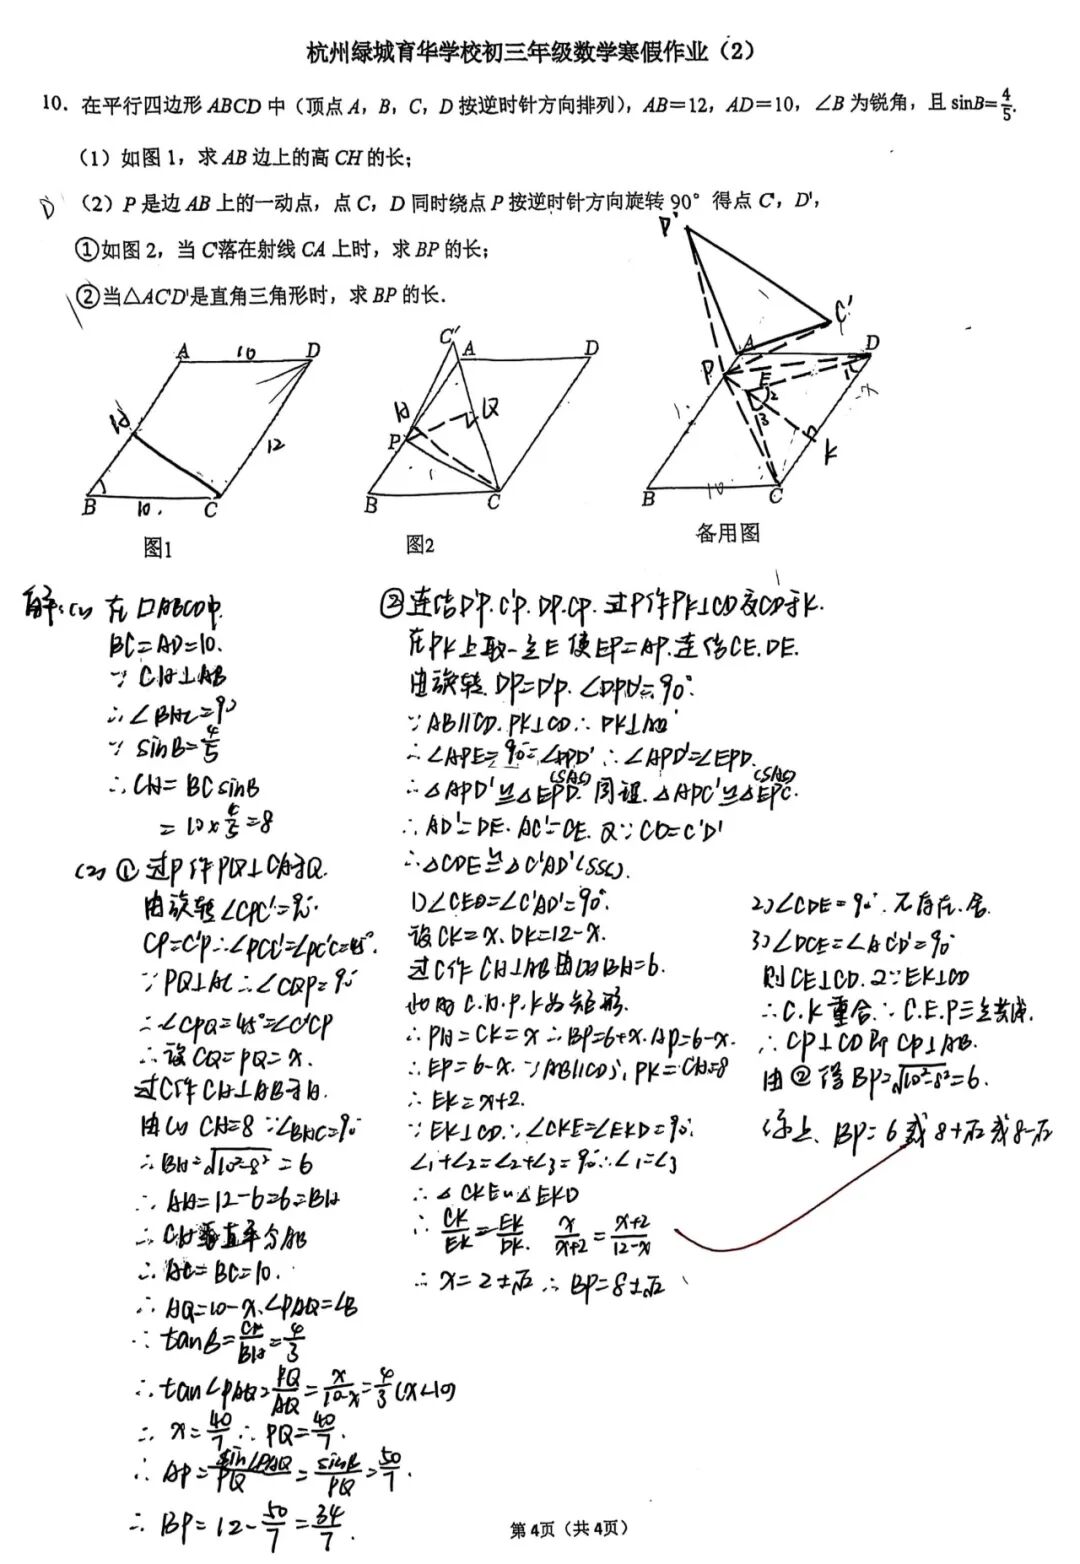 杭州绿城育华学校初三年级数学寒假作业（2）
10．在平行四边形ABCD中（顶点A，B，C，D按逆时针方向排列），AB＝12，AD＝10，∠B为锐角，且sinB=4/5.
（1）如图1，求AB边上的高CH的长；
（2）P是边AB上的一动点，点C，D同时绕点P按逆时针方向旋转90°得点C'，D'，
①如图2，当C'落在射线CA上时，求BP的长；
②当△AC'D'是直角三角形时，求BP的长．
A 10 D
H
12
B 10. C
图1
C' A D
H Q
P
B C
图2
D'
C'
A D
P E
1 2 3
K
B 10 C
备用图
解:(1) 在▱ABCD中.
BC=AD=10.
∵ CH⊥AB
∴∠BHC=90
∵ sinB=4/5
∴CH= BCsinB
=10×4/5=8
(2) ①过P作PQ⊥CA于Q.
由旋转∠CPC'=90°.
CP=C'P∴∠PCC'=∠PC'C=45°.
∵PQ⊥AC∴∠CQP=90
∴∠CPQ=45°=∠C'CP
∴设CQ=PQ=x.
过C作CH⊥AB于H.
由(1) CH=8∵∠BHC=90
∴BH=√(10²-8²)=6
∴AH=12-6=6=BH
∴CH垂直平分AB
∴AC=BC=10.
∴AQ=10-x.∠PAQ=∠B
∵tanB=CH/BH=4/3
∴tan∠PAQ=PQ/AQ=x/(10-x)=4/3(x<10)
∴x=40/7∴PQ=40/7.
∴AP=sin∠PAQ/PQ=sinB/PQ=50/7.
∴BP=12-50/7=34/7.
②连结D'P.C'P.DP.CP.过P作PK⊥CD交CD于K.
在PK上取一点E使EP=AP.连结CE.DE.
由旋转.DP=D'P.∠DPD'=90°.
∵AB∥CD.PK⊥CD∴PK⊥AB
∴∠APE=90°=∠DPD'∴∠APD'=∠EPD.
∴△APD'≌△EPD(SAS).同理.△APC'≌△EPC(SAS).
∴AD'=DE.AC'=CE.又∵CD=C'D'
∴△CDE≌△C'AD'(SSS).
1)∠CED=∠C'AD'=90°.
设CK=x.DK=12-x.
过C作CH⊥AB由(1)BH=6.
此时C.H.P.K为矩形.
∴PH=CK=x∴BP=6+x.AP=6-x.
∴EP=6-x.∵AB∥CD∴PK=CH=8
∴EK=x+2.
∵EK⊥CD∴∠CKE=∠EKD=90°.
∠1+∠2=∠2+∠3=90°∴∠1=∠3
∴△CKE∽△EKD
∴CK/EK=EK/DK. x/(x+2)=(x+2)/(12-x)
∴x=2±√2∴BP=8±√2
2)∠CDE=90°.不存在.舍.
3)∠DCE=∠AC'D'=90°
则CE⊥CD.又∵EK⊥CD
∴C.K重合∴C.E.P三点共线.
∴CP⊥CD即CP⊥AB.
由②得BP=√(10²-8²)=6.
综上、BP=6或8+√2或8-√2
第4页（共4页）